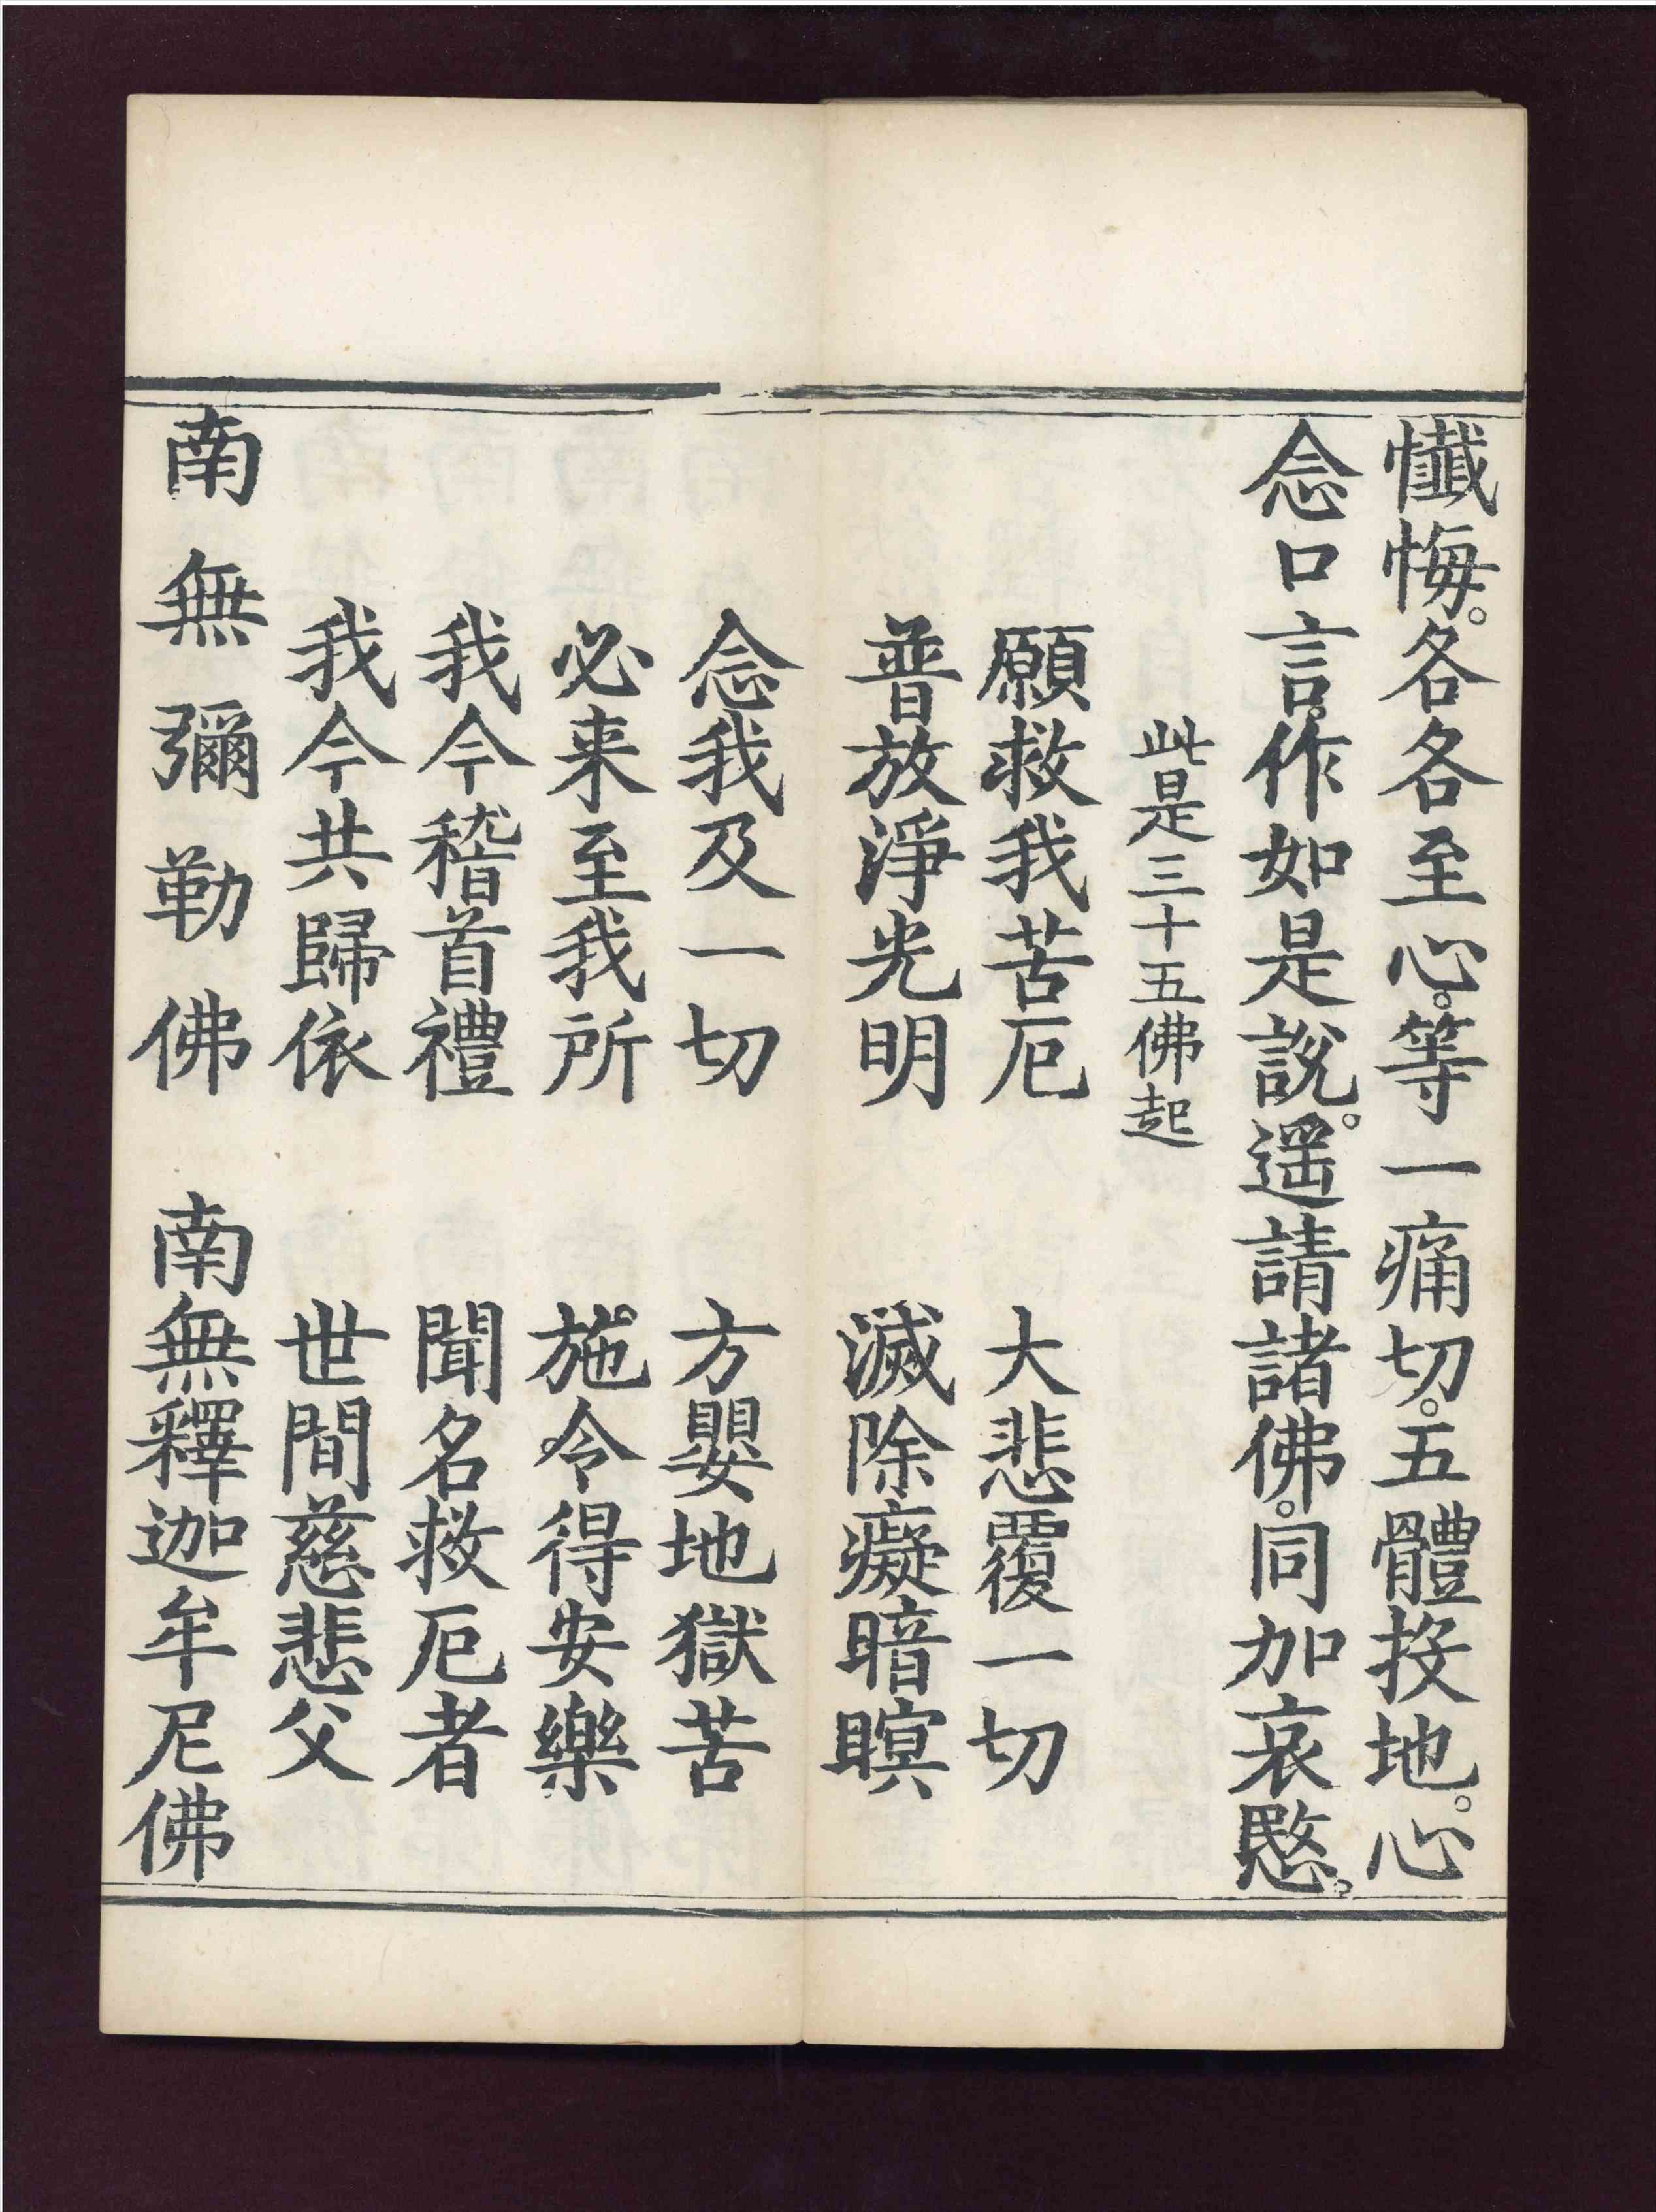 懺悔。各各至心。等一痛切。五體投地。心
念口言。作如是說。遥請諸佛。同加哀愍。
此是三十五佛起
願救我苦厄　大悲覆一切
普放淨光明　滅除癡暗暝
念我及一切　方嬰地獄苦
必来至我所　施令得安樂
我今稽首禮　聞名救厄者
我今共歸依　世間慈悲父
南無彌勒佛　南無釋迦牟尼佛